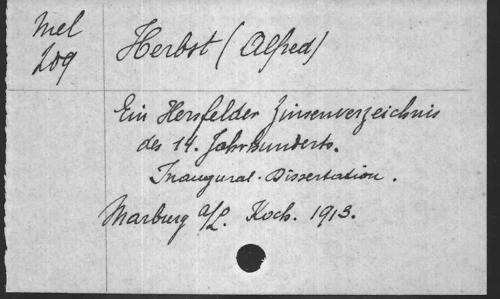 Mel
209
Herbst (Alfred)
Ein Hersfelder Zinsenverzeichnis
des 14. Jahrhunderts.
Inaugural-Dissertation.
Marburg a/L. Koch. 1913.